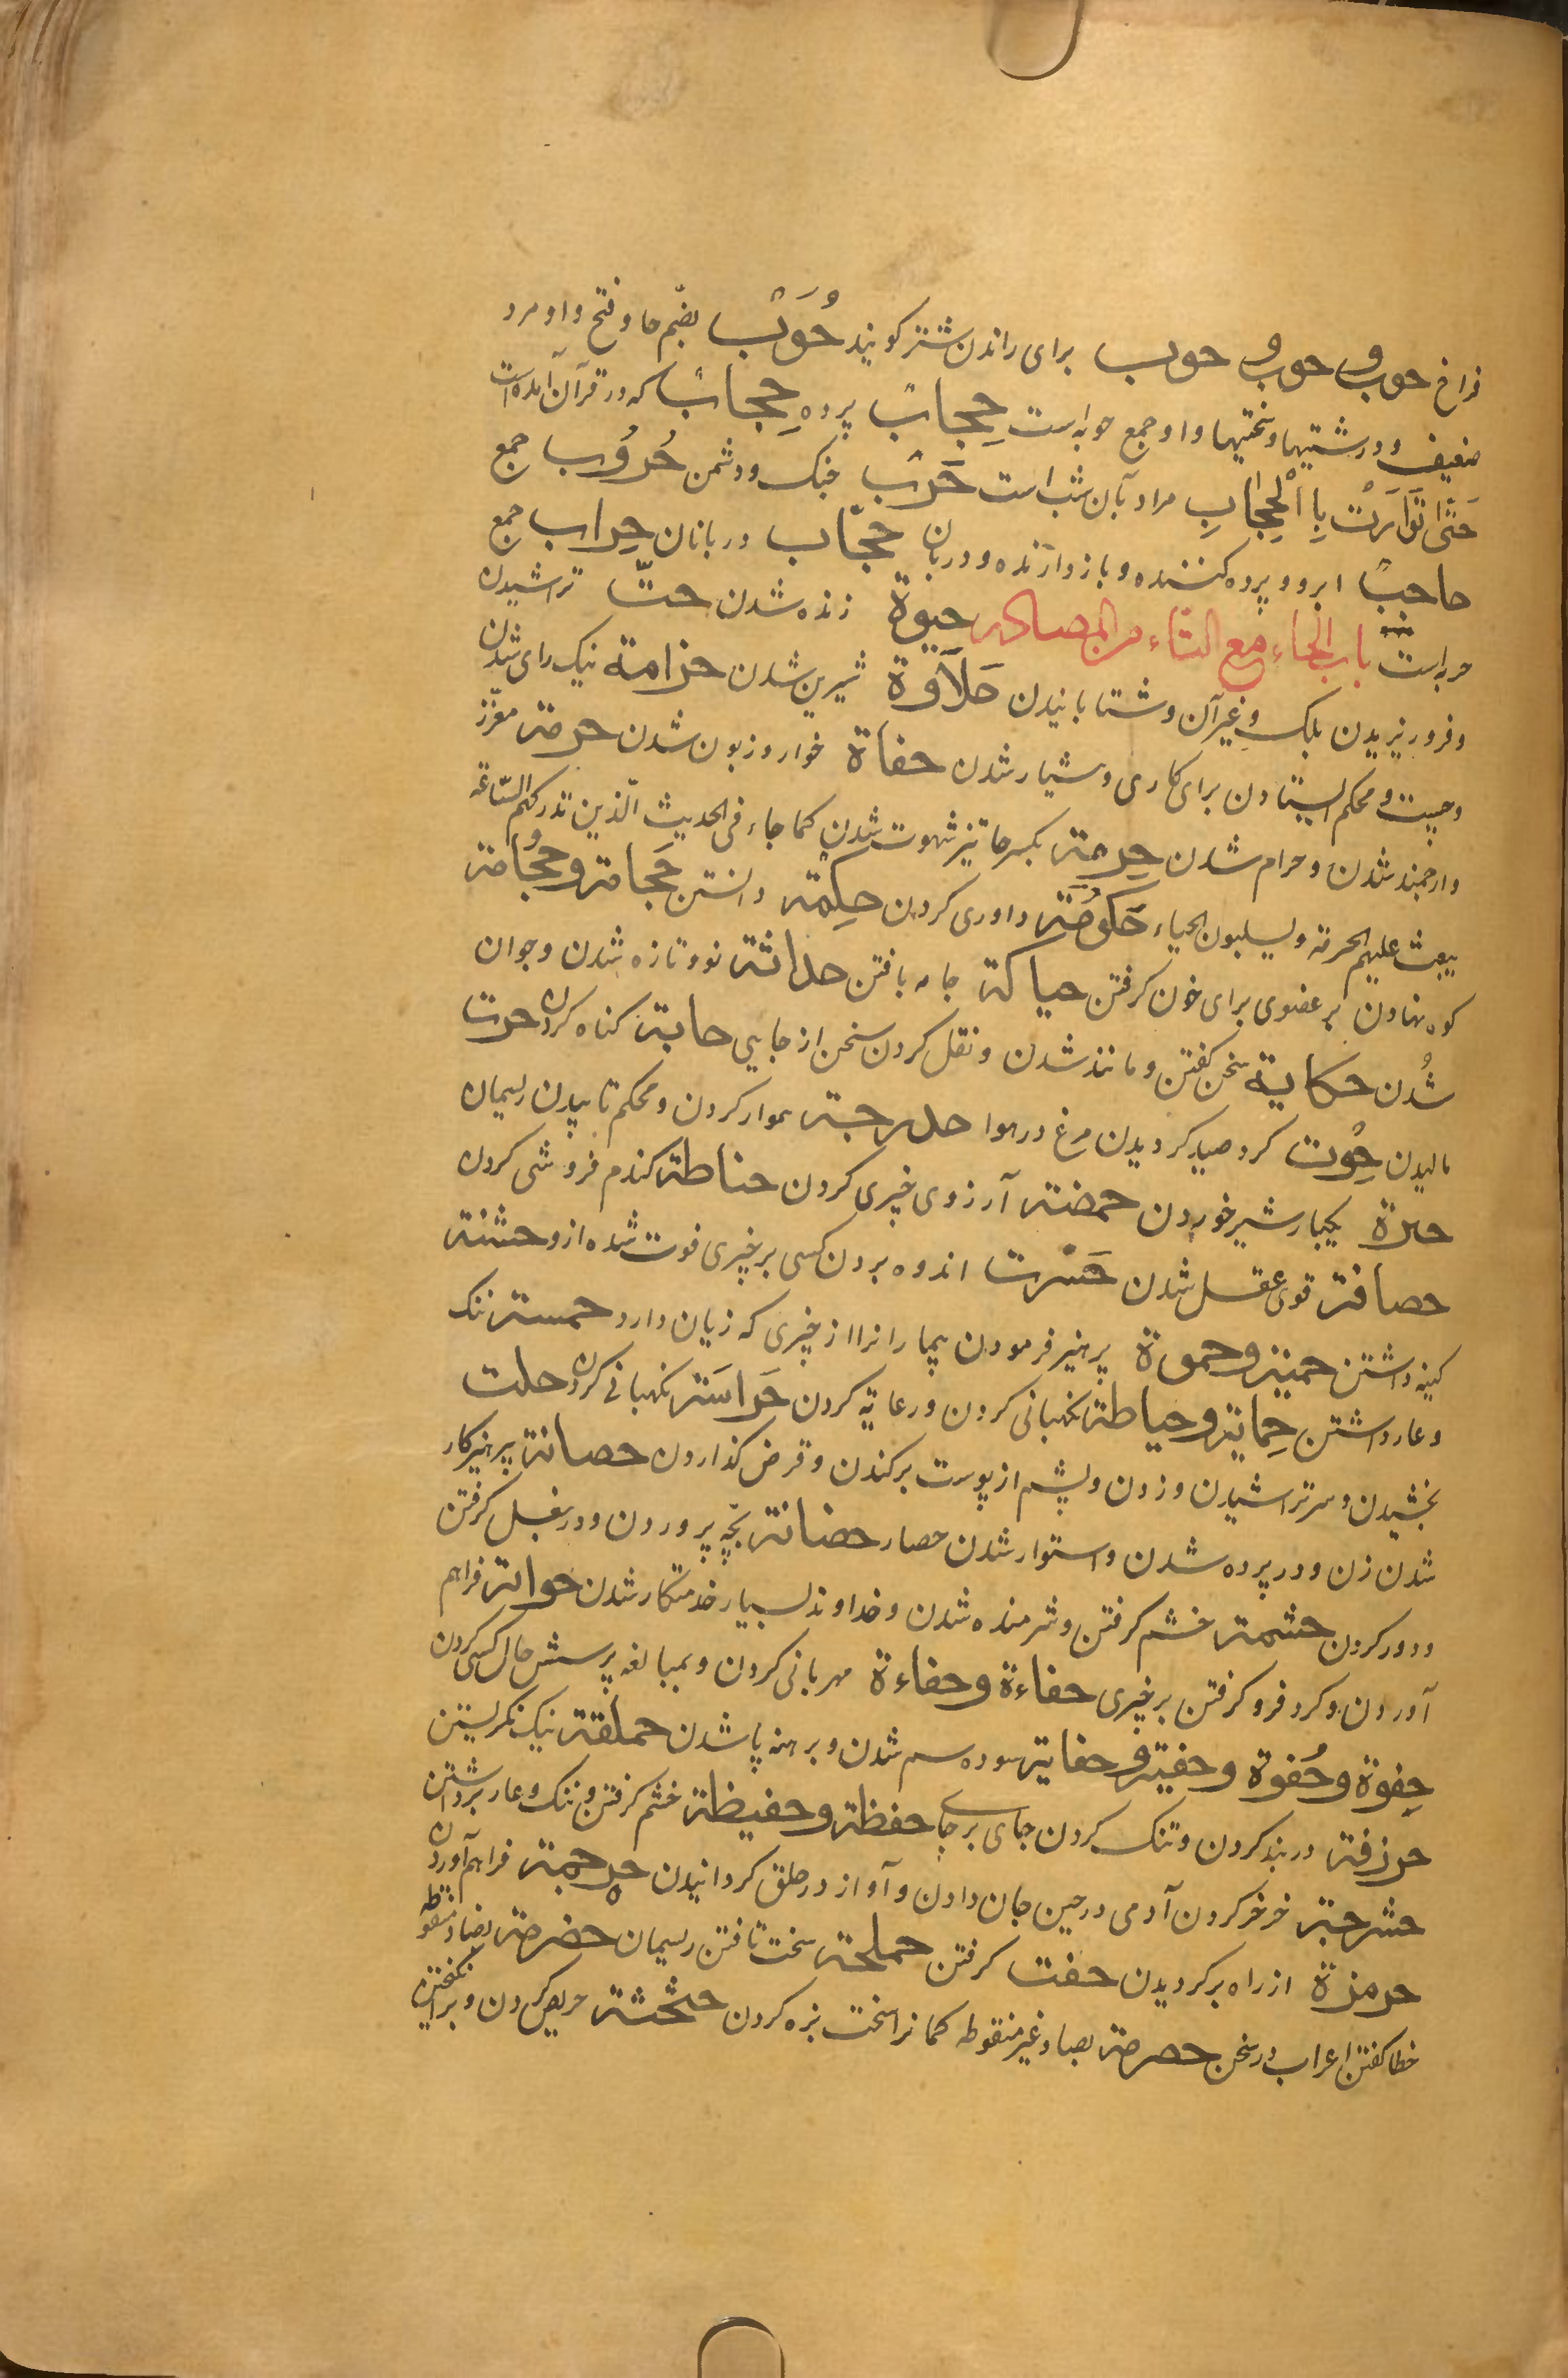 فراخ حوب و حوب و حوب برای راندن شتر کویند حُوَبٌ بضّم حا و فتح واو مرد
ضعیف و درشتیها و سختیها و او جمع حوبه است حِجابٌ پرده حِجابٌ که در قرآن آمده است
حَتّىٰ تَوَارَتْ بِالْحِجَابِ مراد بآن شب است حَرْب جنک و دشمن حُرُوب جمع
حاجبٌ ابرو و پرده کننده و بازدارنده و دربان حجّاب دربانان حِراب جمع
حربه است باب الحاء مع التاء من المصادر حیوة زنده شدن حتّ تراشیدن
و فرو ریزیدن بلک و غیر آن و شتابانیدن حَلاَوة شیرین شدن حزامة نیک رای شدن
و چست و محکم ایستادن برای کاری و شیار شدن حفاة خوار و زبون شدن حرمة معزّز
و ارجمند شدن و حرام شدن حِرمة بکسر حا تیز شهوت شدن کما جاء فی الحدیث الّذین تدرکهم السّاعة
یبعث علیهم الحرمة و یسلبون الحیاء حَکُومَة داوری کردن حِکمة دانستن حَجامة و حُجامة
کوه نهادن بر عضوی برای خون کرفتن حیاکة جامه بافتن حداثة نو و تازه شدن و جوان
شُدن حکایة سخن کفتن و مانند شدن و نقل کردن سخن از جایی حابة کناه کردن حرت
مالیدن حُوت کرد صید کردیدن مرغ در هوا حدرجة هموار کردن و محکم تابیدن ریسمان
حرة یکبار شیر خوردن حمضة آرزوی چیزی کردن حناطة کندم فروشی کردن
حصافة قوی عقل شدن حَسْرت اندوه بردن کسی بر چیزی فوت شده ازو حشنة
کینه داشتن حمیة و حموة پرهیز فرمودن بیمار را نرا از چیزی که زیان دارد حمسة ننک
و عار داشتن حِمایة و حیاطة نکهبانی کردن و رعایة کردن حَراسَة نکهبانی کردن حلت
بخشیدن و سر تراشیدن و زدن و پشم از پوست برکندن و قرض کذاردن حصانة پرهیزکار
شدن زن و در پرده شدن و استوار شدن حصار حضانة بچّه پروردن و در بغل کرفتن
و دور کردن حشمة خشم کرفتن و شرمنده شدن و خداوند بسیار خدمتکار شدن حواتة فراهم
آوردن و کرد فرو کرفتن بر چیزی حفاءة و حفاءة مهربانی کردن و بمبالغه پرسش حال کسی کردن
حِفوة و حُفوة و حفیة و حفایة سوده سم شدن و برهنه پا شدن حملقة نیک نکریستن
حرزقة در بند کردن و تنک کردن جای بر جای حفظة و حفیظة خشم کرفتن و ننک و عار برداشتن
حشرجة خرخر کردن آدمی در حین جان دادن و آواز در حلق کردانیدن حرجمة فراهم آوردن
حرمزة از راه برکردیدن حفت کرفتن حملجة سخت تافتن ریسمان حضرمة بضاد منقوطه
خطا کفتن اعراب در سخن حصرمة بصاد غیر منقوطه کمانرا سخت بزه کردن حثحثة حریص کردن و برانکیختن